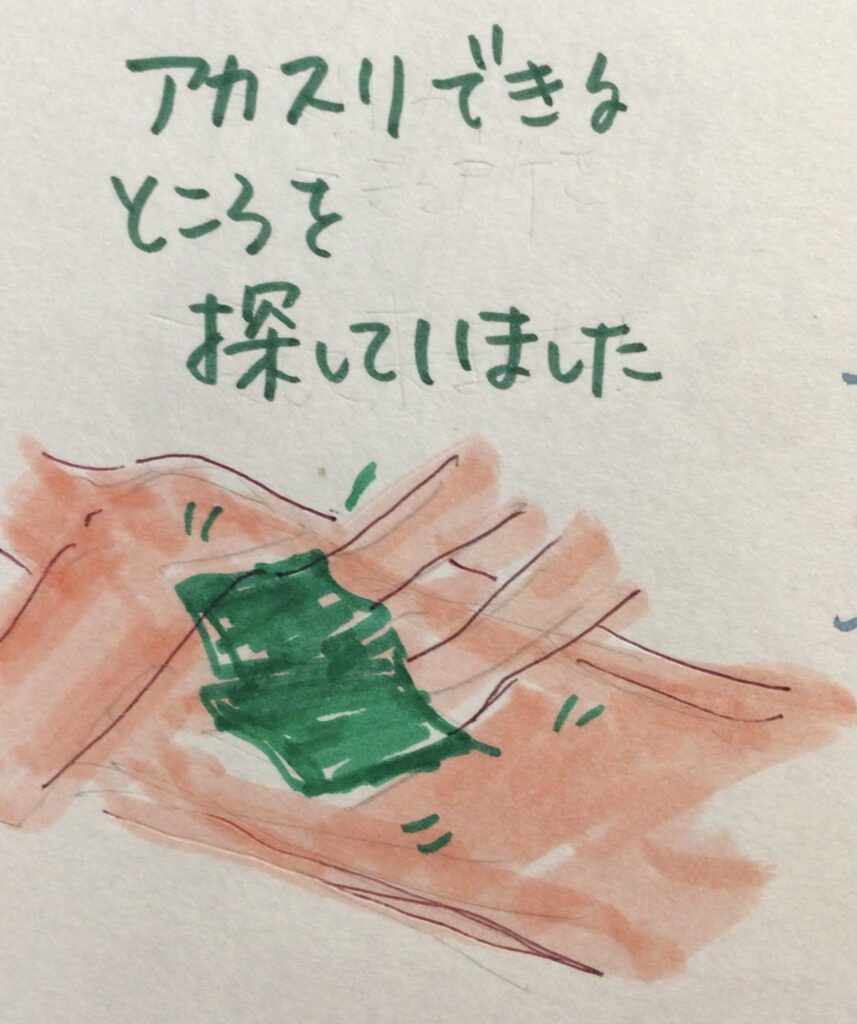 アカスリできる
ところを
探していました